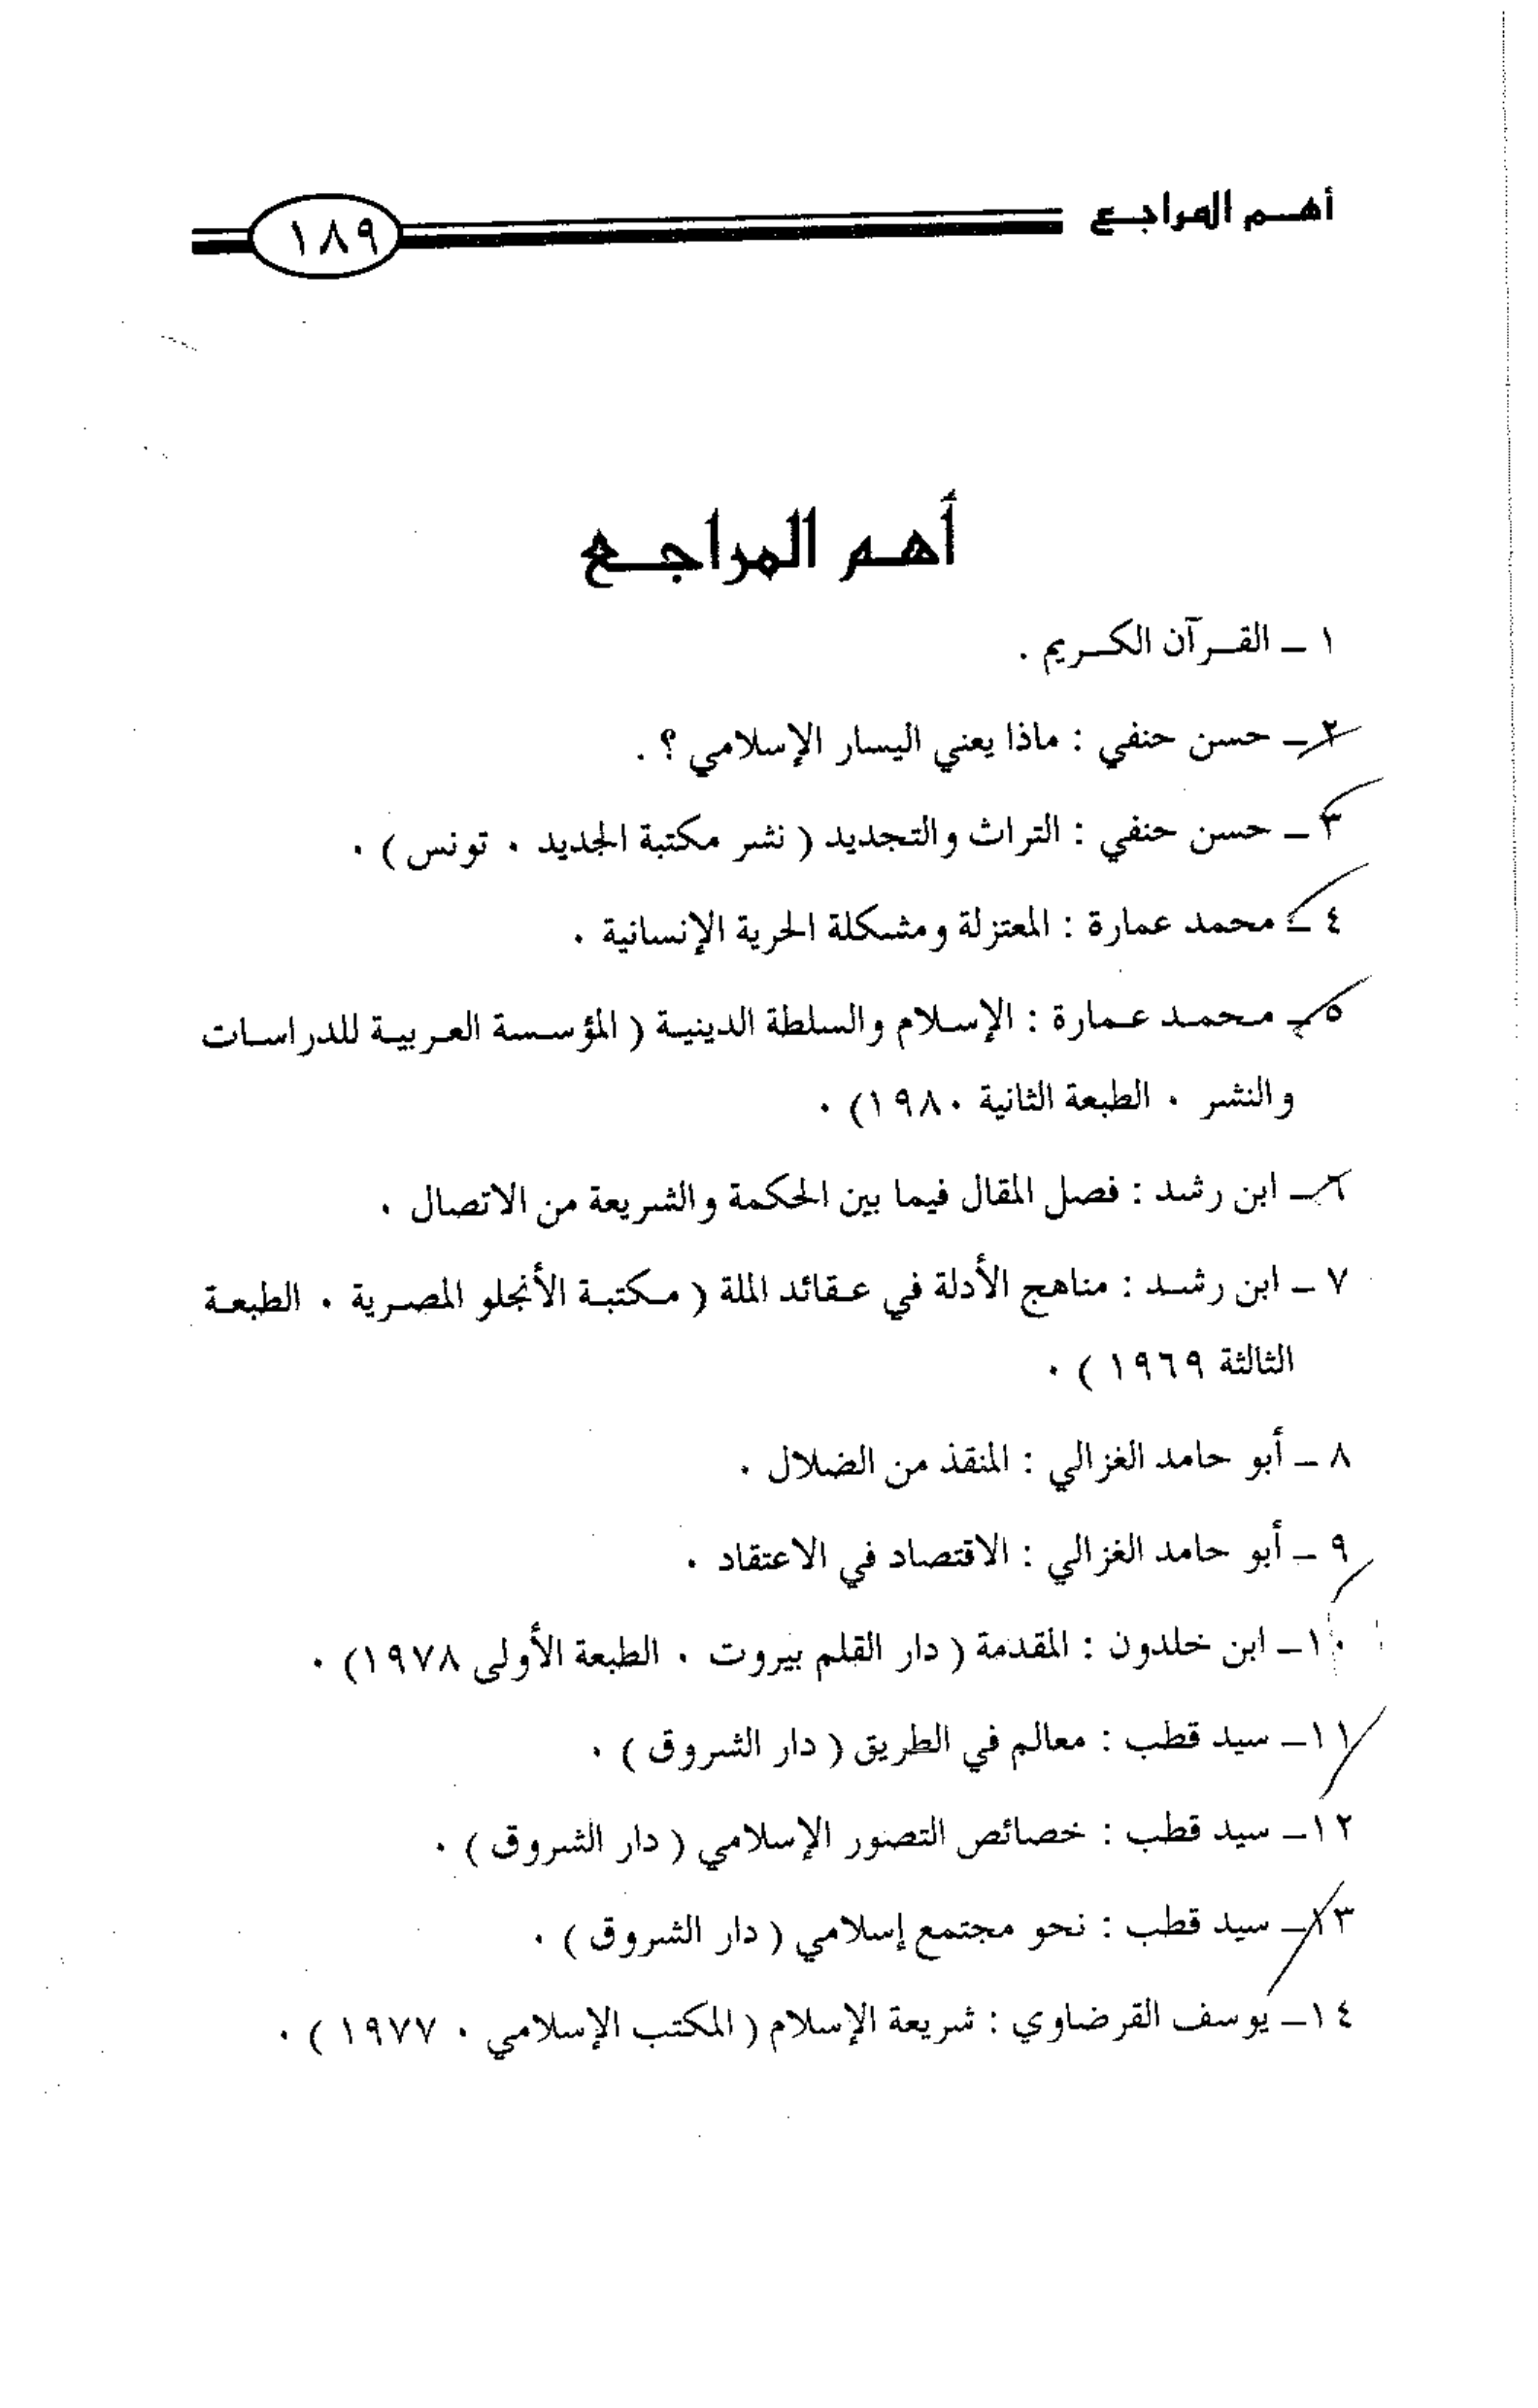 أهم المراجع ١٨٩
أهم المراجع
١ ـ القرآن الكريم .
٢ ـ حسن حنفي : ماذا يعني اليسار الإسلامي ؟ .
٣ ـ حسن حنفي : التراث والتجديد ( نشر مكتبة الجديد . تونس ) .
٤ ـ محمد عمارة : المعتزلة ومشكلة الحرية الإنسانية .
٥ ـ محمد عمارة : الإسلام والسلطة الدينية ( المؤسسة العربية للدراسات
والنشر . الطبعة الثانية ١٩٨٠) .
٦ ـ ابن رشد : فصل المقال فيما بين الحكمة والشريعة من الاتصال .
٧ ـ ابن رشد : مناهج الأدلة في عقائد الملة ( مكتبة الأنجلو المصرية . الطبعة
الثالثة ١٩٦٩ ) .
٨ ـ أبو حامد الغزالي : المنقذ من الضلال .
٩ ـ أبو حامد الغزالي : الاقتصاد في الاعتقاد .
١٠ـ ابن خلدون : المقدمة ( دار القلم بيروت . الطبعة الأولى ١٩٧٨) .
١١ـ سيد قطب : معالم في الطريق ( دار الشروق ) .
١٢ـ سيد قطب : خصائص التصور الإسلامي ( دار الشروق ) .
١٣ـ سيد قطب : نحو مجتمع إسلامي ( دار الشروق ) .
١٤ـ يوسف القرضاوي : شريعة الإسلام ( المكتب الإسلامي . ١٩٧٧ ) .